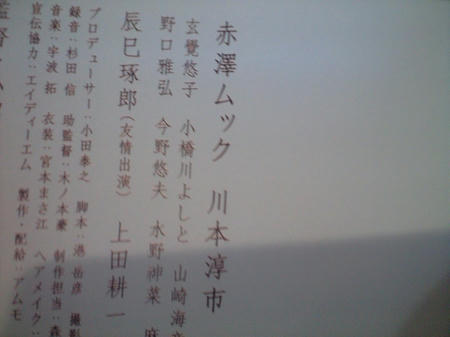 赤澤ムック 川本淳市
玄覺悠子 小橋川よしと 山崎海
野口雅弘 今野悠夫 水野神菜
辰巳琢郎(友情出演) 上田耕一
プロデューサー:小田泰之 脚本:港岳彦 撮影
録音:杉田 信 助監督:木ノ本豪 制作担当:森
音楽:宇波 拓 衣装:宮本まさ江 ヘアメイク:
宣伝協力:エイディーエム 製作・配給:アムモ